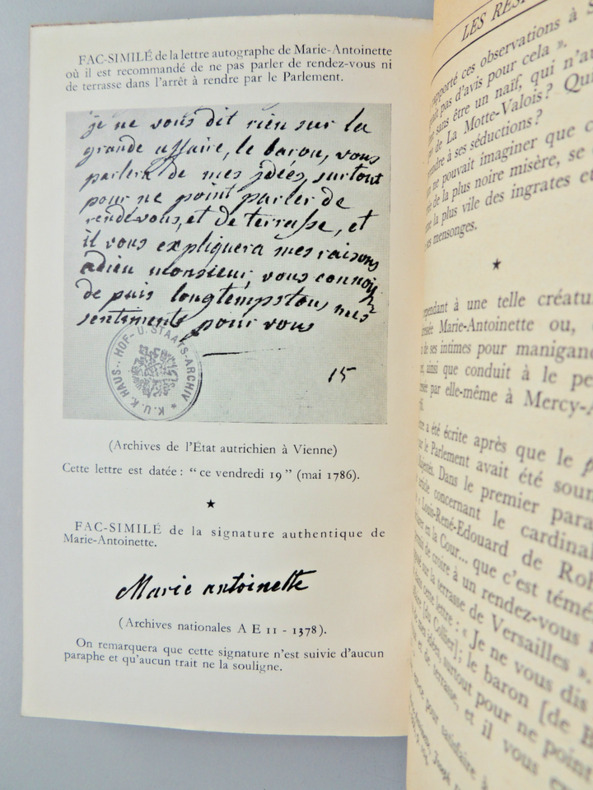 FAC-SIMILÉ de la lettre autographe de Marie-Antoinette
où il est recommandé de ne pas parler de rendez-vous ni
de terrasse dans l'arrêt à rendre par le Parlement.
je ne vous dit rien sur la
grande affaire, le baron, vous
parlera de mes jdées, surtout
pour ne point parler de
rendevous, et de terrasse, et
il vous expliquera mes raisons
adieu monsieur, vous connoy
de puis longtemps tous mes
sentiments pour vous
15
K. U. K. HAUS-. HOF- U. STAATS-ARCHIV
(Archives de l'État autrichien à Vienne)
Cette lettre est datée : “ ce vendredi 19 ” (mai 1786).
★
FAC-SIMILÉ de la signature authentique de
Marie-Antoinette.
Marie antoinette
(Archives nationales A E 11 - 1378).
On remarquera que cette signature n'est suivie d'aucun
paraphe et qu'aucun trait ne la souligne.
LES RES
apporté ces observations à S
pas d'avis pour cela ».
sans être un naïf, qui n'au
de La Motte-Valois ? Qui
à ses séductions ?
ne pouvait imaginer que c
de la plus noire misère, se
la plus vile des ingrates et
mensonges.
★
à une telle créatu
Marie-Antoinette ou,
de ses intimes pour manigan
ainsi que conduit à le pe
par elle-même à Mercy-A
a été écrite après que le p
le Parlement avait été soum
Dans le premier para
concernant le cardinal
Louis-René-Edouard de Roh
la Cour... que c'est témé
de croire à un rendez-vous
sur la terrasse de Versailles ».
cette lettre : « Je ne vous dis
[du Collier]; le baron [de B
mes idées, surtout pour ne point
et de terrasse, et il vous ex
pour satisfaire à